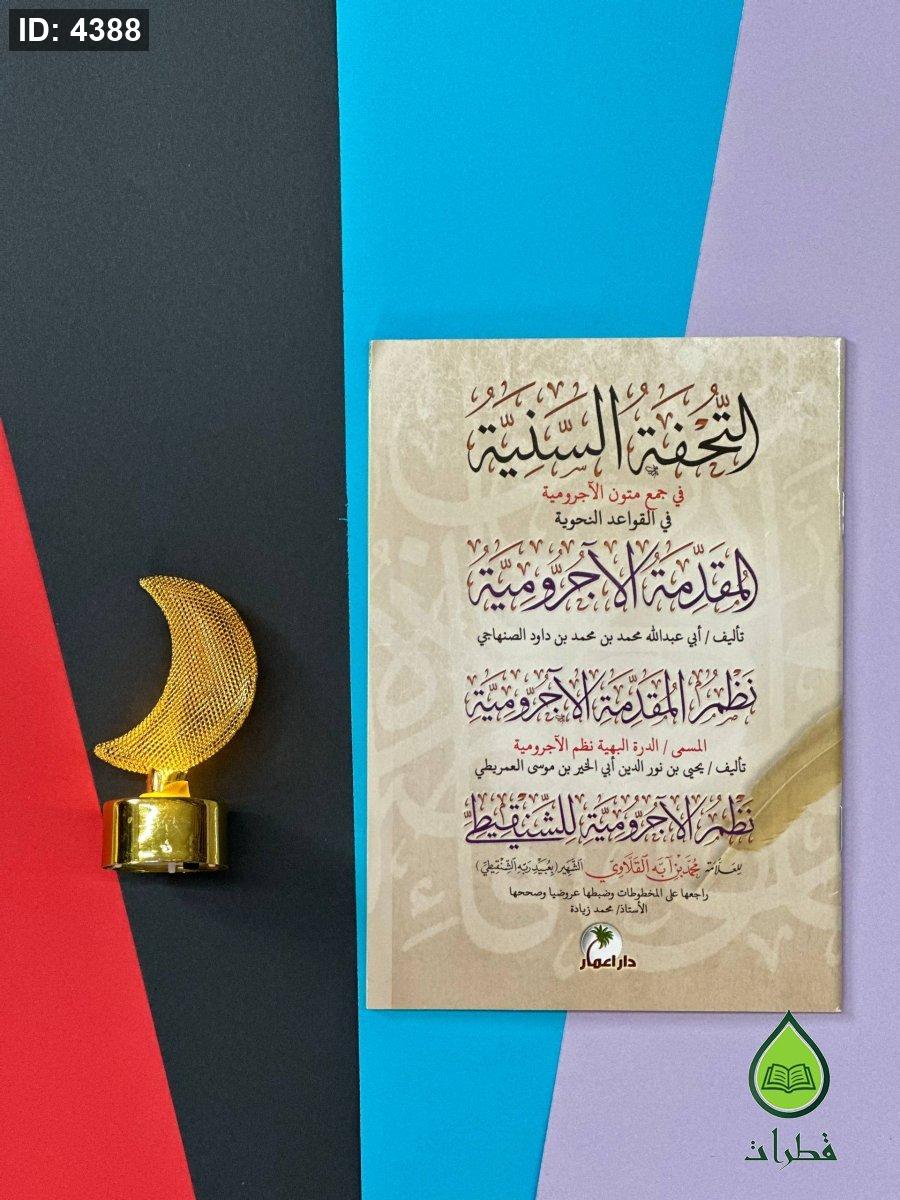 ID: 4388
التُّحْفَةُ السَّنِيَّةُ
في جمع متون الآجرومية
في القواعد النحوية
المُقَدِّمَةُ الآجُرُّومِيَّةُ
تأليف / أبي عبدالله محمد بن محمد بن داود الصنهاجي
نَظْمُ المُقَدِّمَةِ الآجُرُّومِيَّةِ
المسمى / الدرة البهية نظم الآجرومية
تأليف / يحيى بن نور الدين أبي الخير بن موسى العمريطي
نَظْمُ الآجُرُّومِيَّةِ لِلشَّنْقِيطِيِّ
للعلَّامة مُحَمَّد بْنِ آبَّه القَلَّاوِي الشهير (بعُبَيْد ربه الشنقيطي)
راجعها على المخطوطات وضبطها عروضيا وصححها
الأستاذ/ محمد زيادة
دار اعمار
قطرات